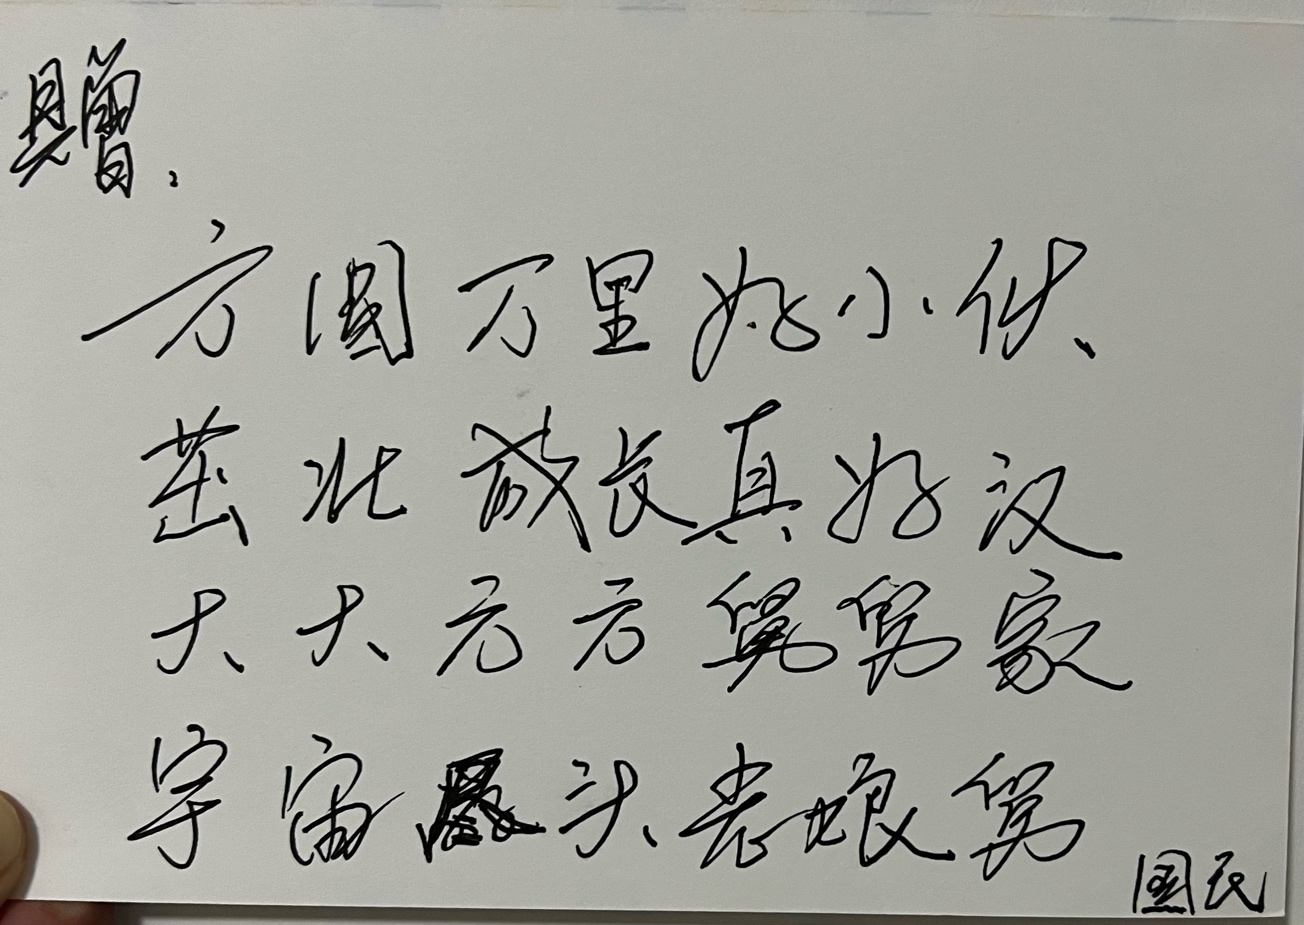 赠:
方圆万里好小伙、
茁壮成长真好汉
大大方方舅舅家
宇宙尽头老娘舅
国民